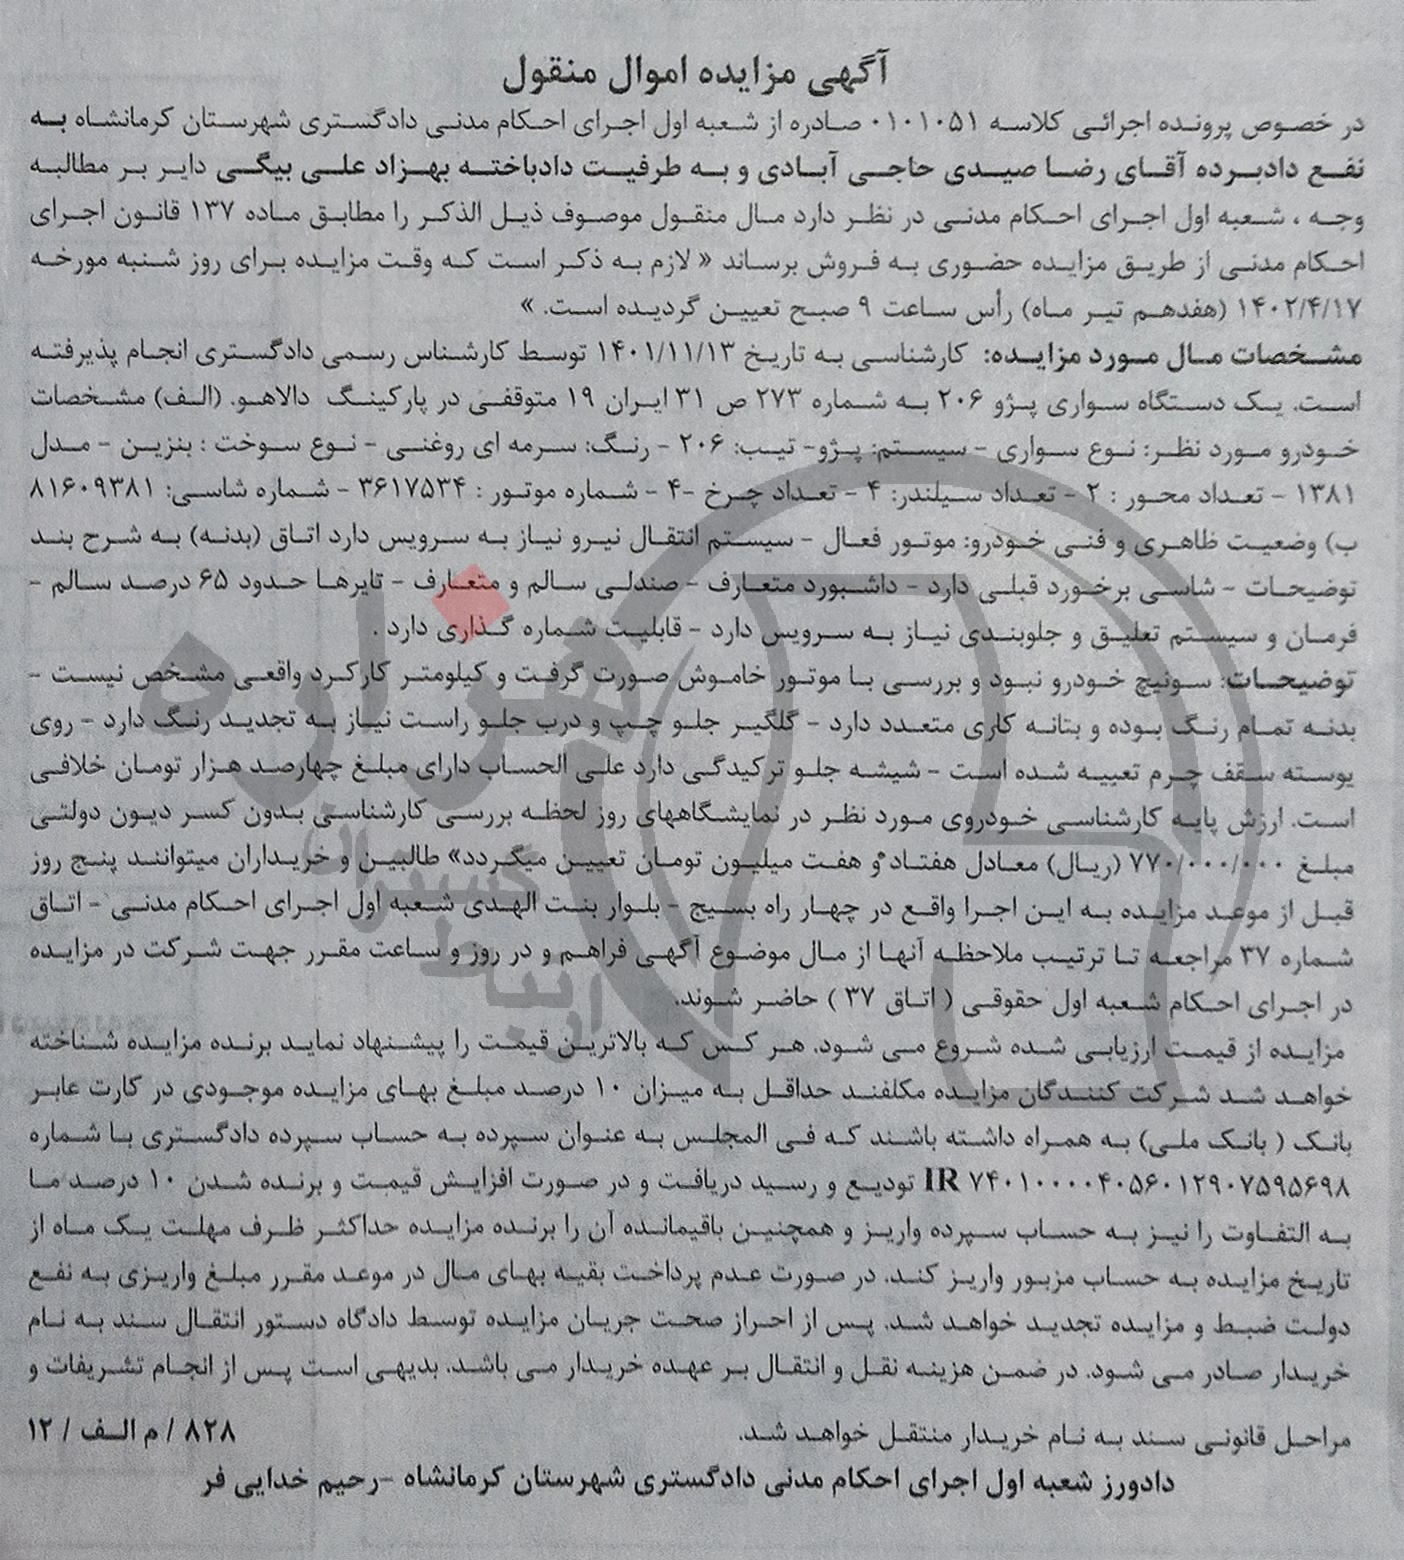 آگهی مزایده اموال منقول
در خصوص پرونده اجرائی کلاسه ۰۱۰۱۰۵۱ صادره از شعبه اول اجرای احکام مدنی دادگستری شهرستان کرمانشاه به
نفع دادبرده آقای رضا صیدی حاجی آبادی و به طرفیت دادباخته بهزاد علی بیگی دایر بر مطالبه
وجه ، شعبه اول اجرای احکام مدنی در نظر دارد مال منقول موصوف ذیل الذکر را مطابق ماده ۱۳۷ قانون اجرای
احکام مدنی از طریق مزایده حضوری به فروش برساند « لازم به ذکر است که وقت مزایده برای روز شنبه مورخه
۱۴۰۲/۴/۱۷ (هفدهم تیر ماه) رأس ساعت ۹ صبح تعیین گردیده است. »
مشخصات مال مورد مزایده: کارشناسی به تاریخ ۱۴۰۱/۱۱/۱۳ توسط کارشناس رسمی دادگستری انجام پذیرفته
است. یک دستگاه سواری پژو ۲۰۶ به شماره ۲۷۳ ص ۳۱ ایران ۱۹ متوقفی در پارکینگ دالاهو. (الف) مشخصات
خودرو مورد نظر: نوع سواری - سیستم: پژو- تیب: ۲۰۶ - رنگ: سرمه ای روغنی - نوع سوخت : بنزین - مدل
۱۳۸۱ - تعداد محور : ۲ - تعداد سیلندر: ۴ - تعداد چرخ -۴ - شماره موتور : ۳۶۱۷۵۳۴ - شماره شاسی: ۸۱۶۰۹۳۸۱
ب) وضعیت ظاهری و فنی خودرو: موتور فعال - سیستم انتقال نیرو نیاز به سرویس دارد اتاق (بدنه) به شرح بند
توضیحات - شاسی برخورد قبلی دارد - داشبورد متعارف - صندلی سالم و متعارف - تایرها حدود ۶۵ درصد سالم -
فرمان و سیستم تعلیق و جلوبندی نیاز به سرویس دارد - قابلیت شماره گذاری دارد .
توضیحات: سونیچ خودرو نبود و بررسی با موتور خاموش صورت گرفت و کیلومتر کارکرد واقعی مشخص نیست -
بدنه تمام رنگ بوده و بتانه کاری متعدد دارد - گلگیر جلو چپ و درب جلو راست نیاز به تجدید رنگ دارد - روی
یوسته سقف چرم تعبیه شده است - شیشه جلو ترکیدگی دارد علی الحساب دارای مبلغ چهارصد هزار تومان خلافی
است. ارزش پایه کارشناسی خودروی مورد نظر در نمایشگاههای روز لحظه بررسی کارشناسی بدون کسر دیون دولتی
مبلغ ۷۷۰/۰۰۰/۰۰۰ (ریال) معادل هفتاد و هفت میلیون تومان تعیین میگردد» طالبین و خریداران میتوانند پنج روز
قبل از موعد مزایده به این اجرا واقع در چهار راه بسیج - بلوار بنت الهدی شعبه اول اجرای احکام مدنی - اتاق
شماره ۳۷ مراجعه تا ترتیب ملاحظه آنها از مال موضوع آگهی فراهم و در روز و ساعت مقرر جهت شرکت در مزایده
در اجرای احکام شعبه اول حقوقی ( اتاق ۳۷ ) حاضر شوند.
مزایده از قیمت ارزیابی شده شروع می شود. هر کس که بالاترین قیمت را پیشنهاد نماید برنده مزایده شناخته
خواهد شد شرکت کنندگان مزایده مکلفند حداقل به میزان ۱۰ درصد مبلغ بهای مزایده موجودی در کارت عابر
بانک ( بانک ملی) به همراه داشته باشند که فی المجلس به عنوان سپرده به حساب سپرده دادگستری با شماره
IR ۷۴۰۱۰۰۰۰۴۰۵۶۰۱۲۹۰۷۵۹۵۶۹۸ تودیع و رسید دریافت و در صورت افزایش قیمت و برنده شدن ۱۰ درصد ما
به التفاوت را نیز به حساب سپرده واریز و همچنین باقیمانده آن را برنده مزایده حداکثر ظرف مهلت یک ماه از
تاریخ مزایده به حساب مزبور واریز کند. در صورت عدم پرداخت بقیه بهای مال در موعد مقرر مبلغ واریزی به نفع
دولت ضبط و مزایده تجدید خواهد شد. پس از احراز صحت جریان مزایده توسط دادگاه دستور انتقال سند به نام
خریدار صادر می شود. در ضمن هزینه نقل و انتقال بر عهده خریدار می باشد. بدیهی است پس از انجام تشریفات و
مراحل قانونی سند به نام خریدار منتقل خواهد شد. ۸۲۸ / م الف / ۱۲
دادورز شعبه اول اجرای احکام مدنی دادگستری شهرستان کرمانشاه -رحیم خدایی فر